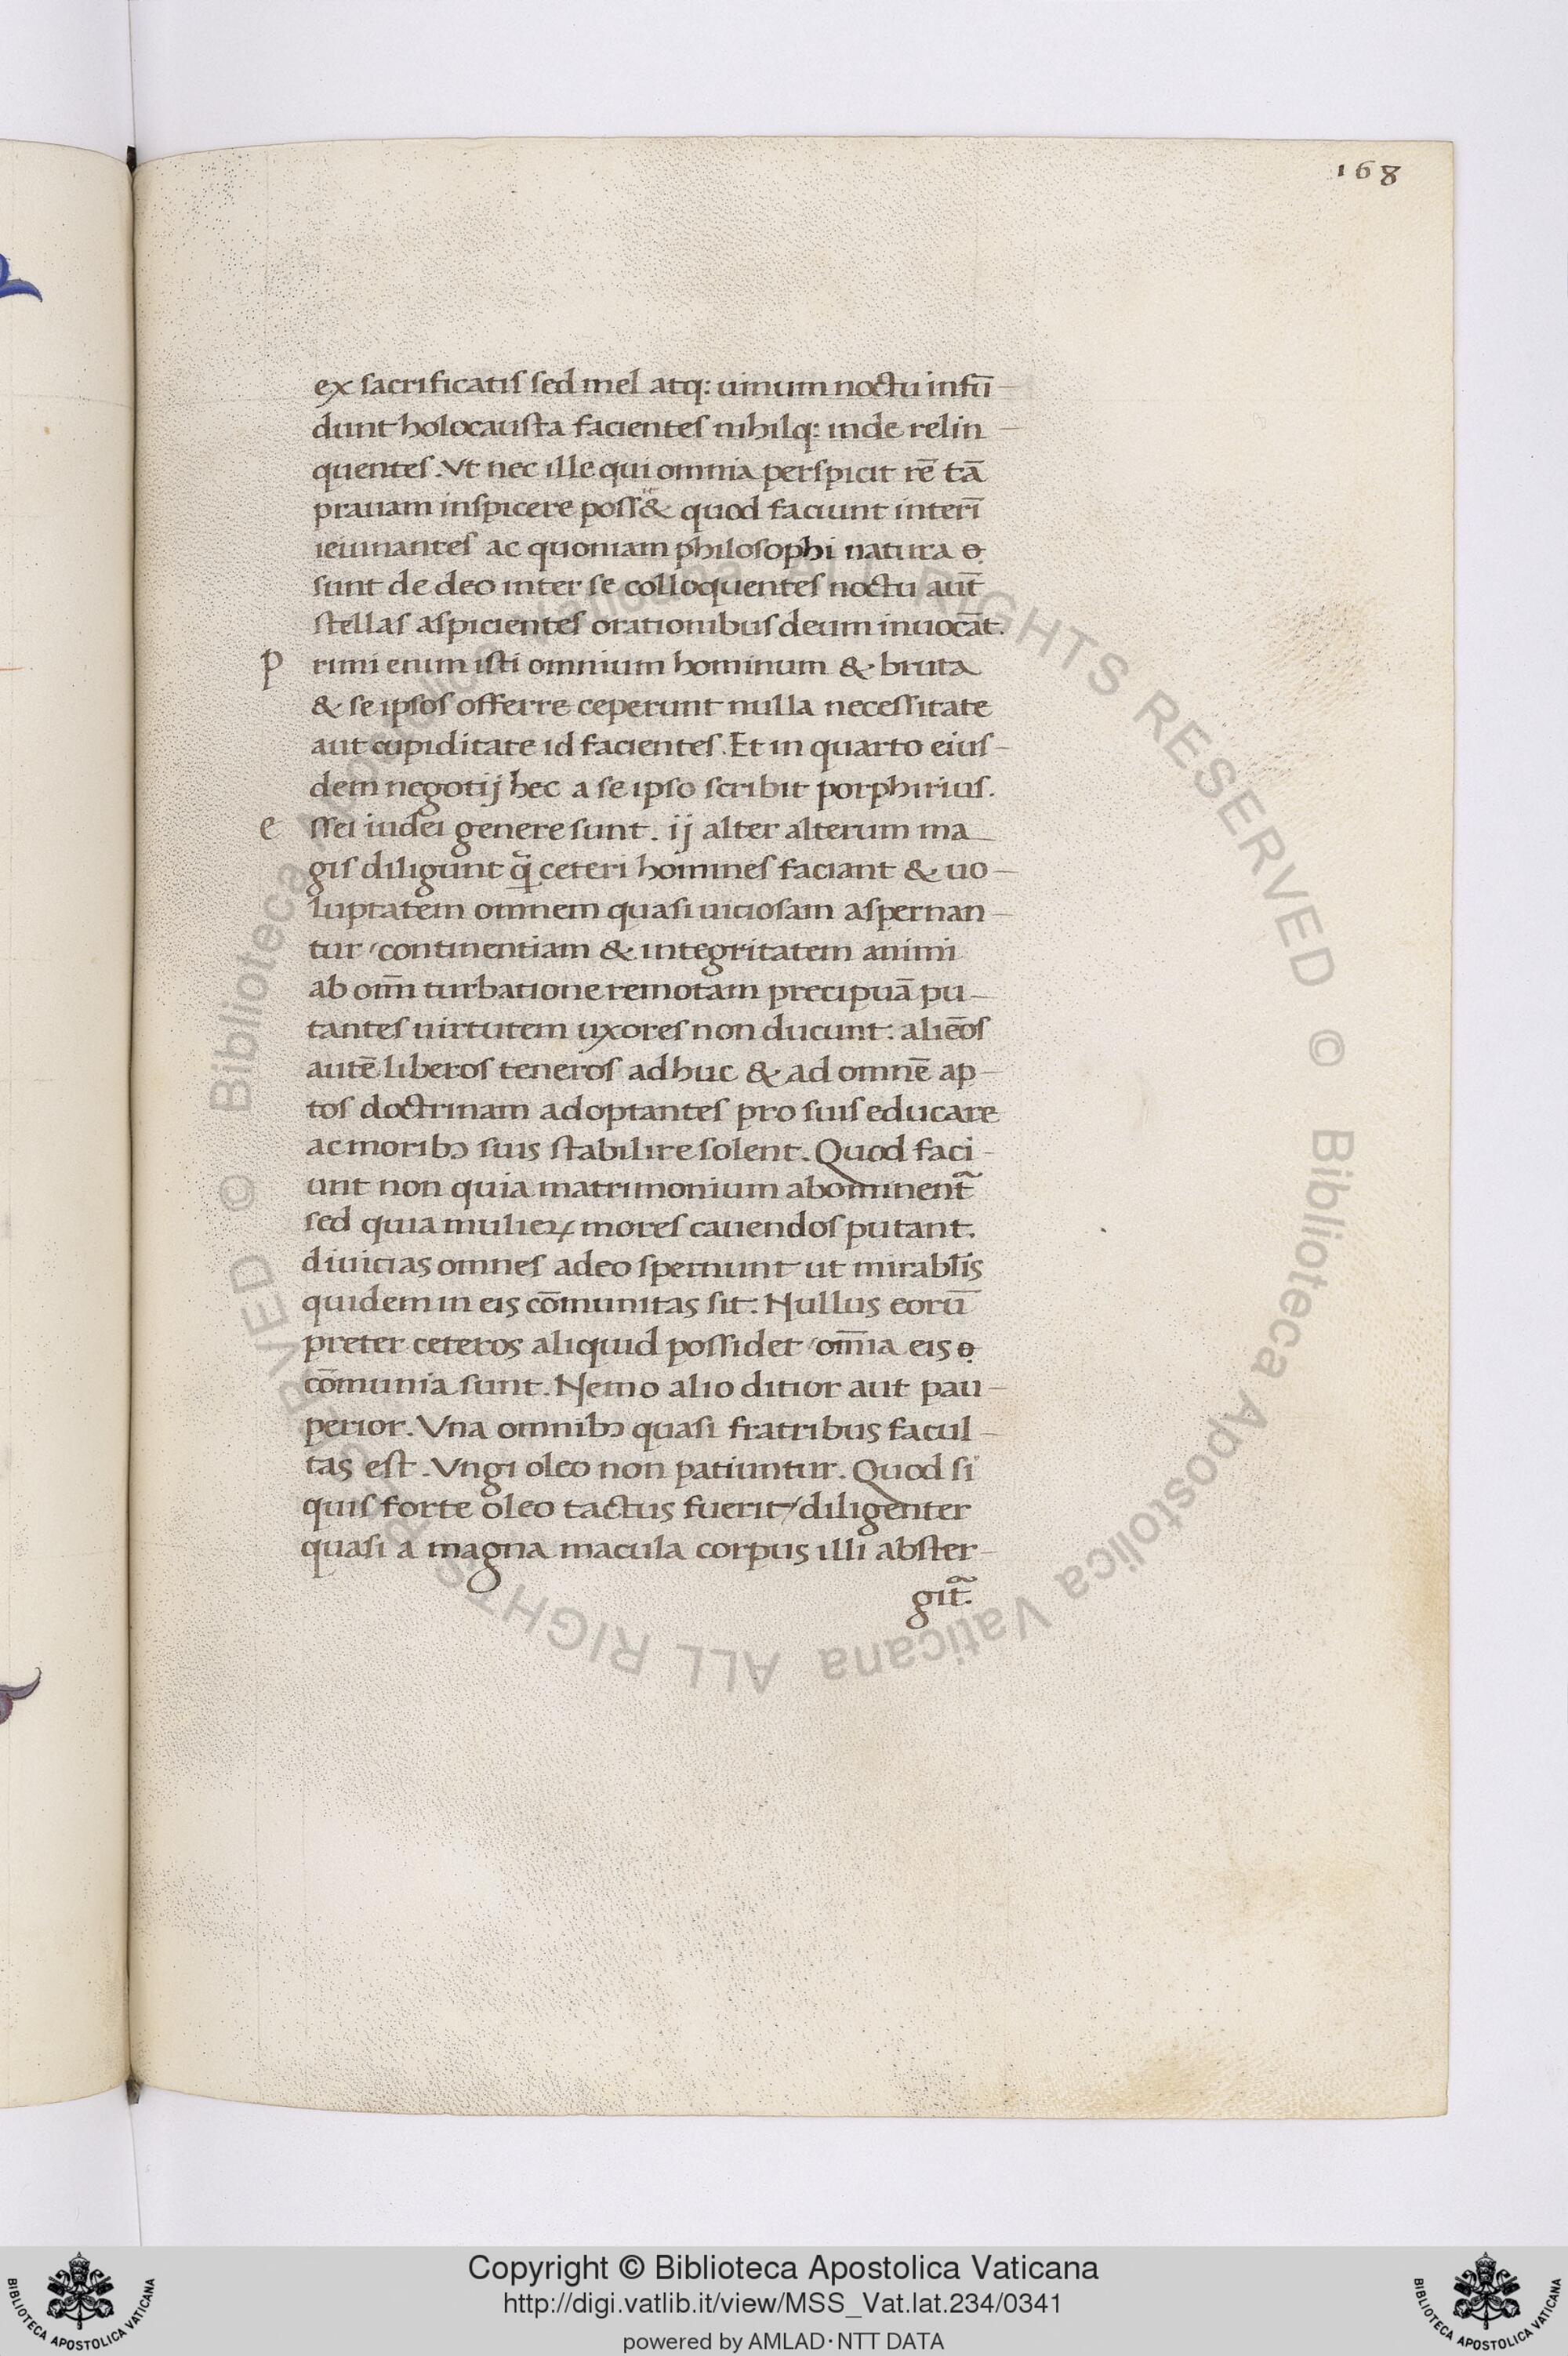 168
ex sacrificatis sed mel atq: uinum noctu infū-
dunt holocausta facientes nihilq: inde relin-
quentes. Vt nec ille qui omnia perspicit rē tā
prauam inspicere poss& quod faciunt interī
ieiunantes ac quoniam philosophi natura
sunt de deo inter se colloquentes noctu aut̄
stellas aspicientes orationibus deum inuocāt.
P rimi enim isti omnium hominum & bruta
& se ipsos offerre ceperunt nulla necessitate
aut cupiditate id facientes. Et in quarto eius-
dem negotij hec a se ipso scribit porphirius.
e ssei iudei genere sunt. ij alter alterum ma-
gis diligunt q̃ ceteri homines faciant & uo-
luptatem omnem quasi uiciosam aspernan-
tur / continentiam & integritatem animi
ab om̄i turbatione remotam precipuā pu-
tantes uirtutem uxores non ducunt: aliēos
autē liberos teneros adhuc & ad omnē ap-
tos doctrinam adoptantes pro suis educare
ac moribꝰ suis stabilire solent. Quod faci-
unt non quia matrimonium abominent᷉
sed quia mulieꝝ mores cauendos putant.
diuicias omnes adeo spernunt ut mirabl̄is
quidem in eis cōmunitas sit: Nullus eorū
preter ceteros aliquid possidet / om̄ia eis
cōmunia sunt. Nemo alio ditior aut pau-
perior. Vna omnibꝰ quasi fratribus facul-
tas est. Vngi oleo non patiuntur. Quod si
quis forte oleo tactus fuerit / diligenter
quasi a magna macula corpus illi abster-
git᷉.
© Biblioteca Apostolica Vaticana ALL RIGHTS RESERVED © Biblioteca Apostolica Vaticana ALL RIGHTS RESERVED
BIBLIOTECA APOSTOLICA VATICANA
Copyright © Biblioteca Apostolica Vaticana
http://digi.vatlib.it/view/MSS_Vat.lat.234/0341
powered by AMLAD·NTT DATA
BIBLIOTECA APOSTOLICA VATICANA